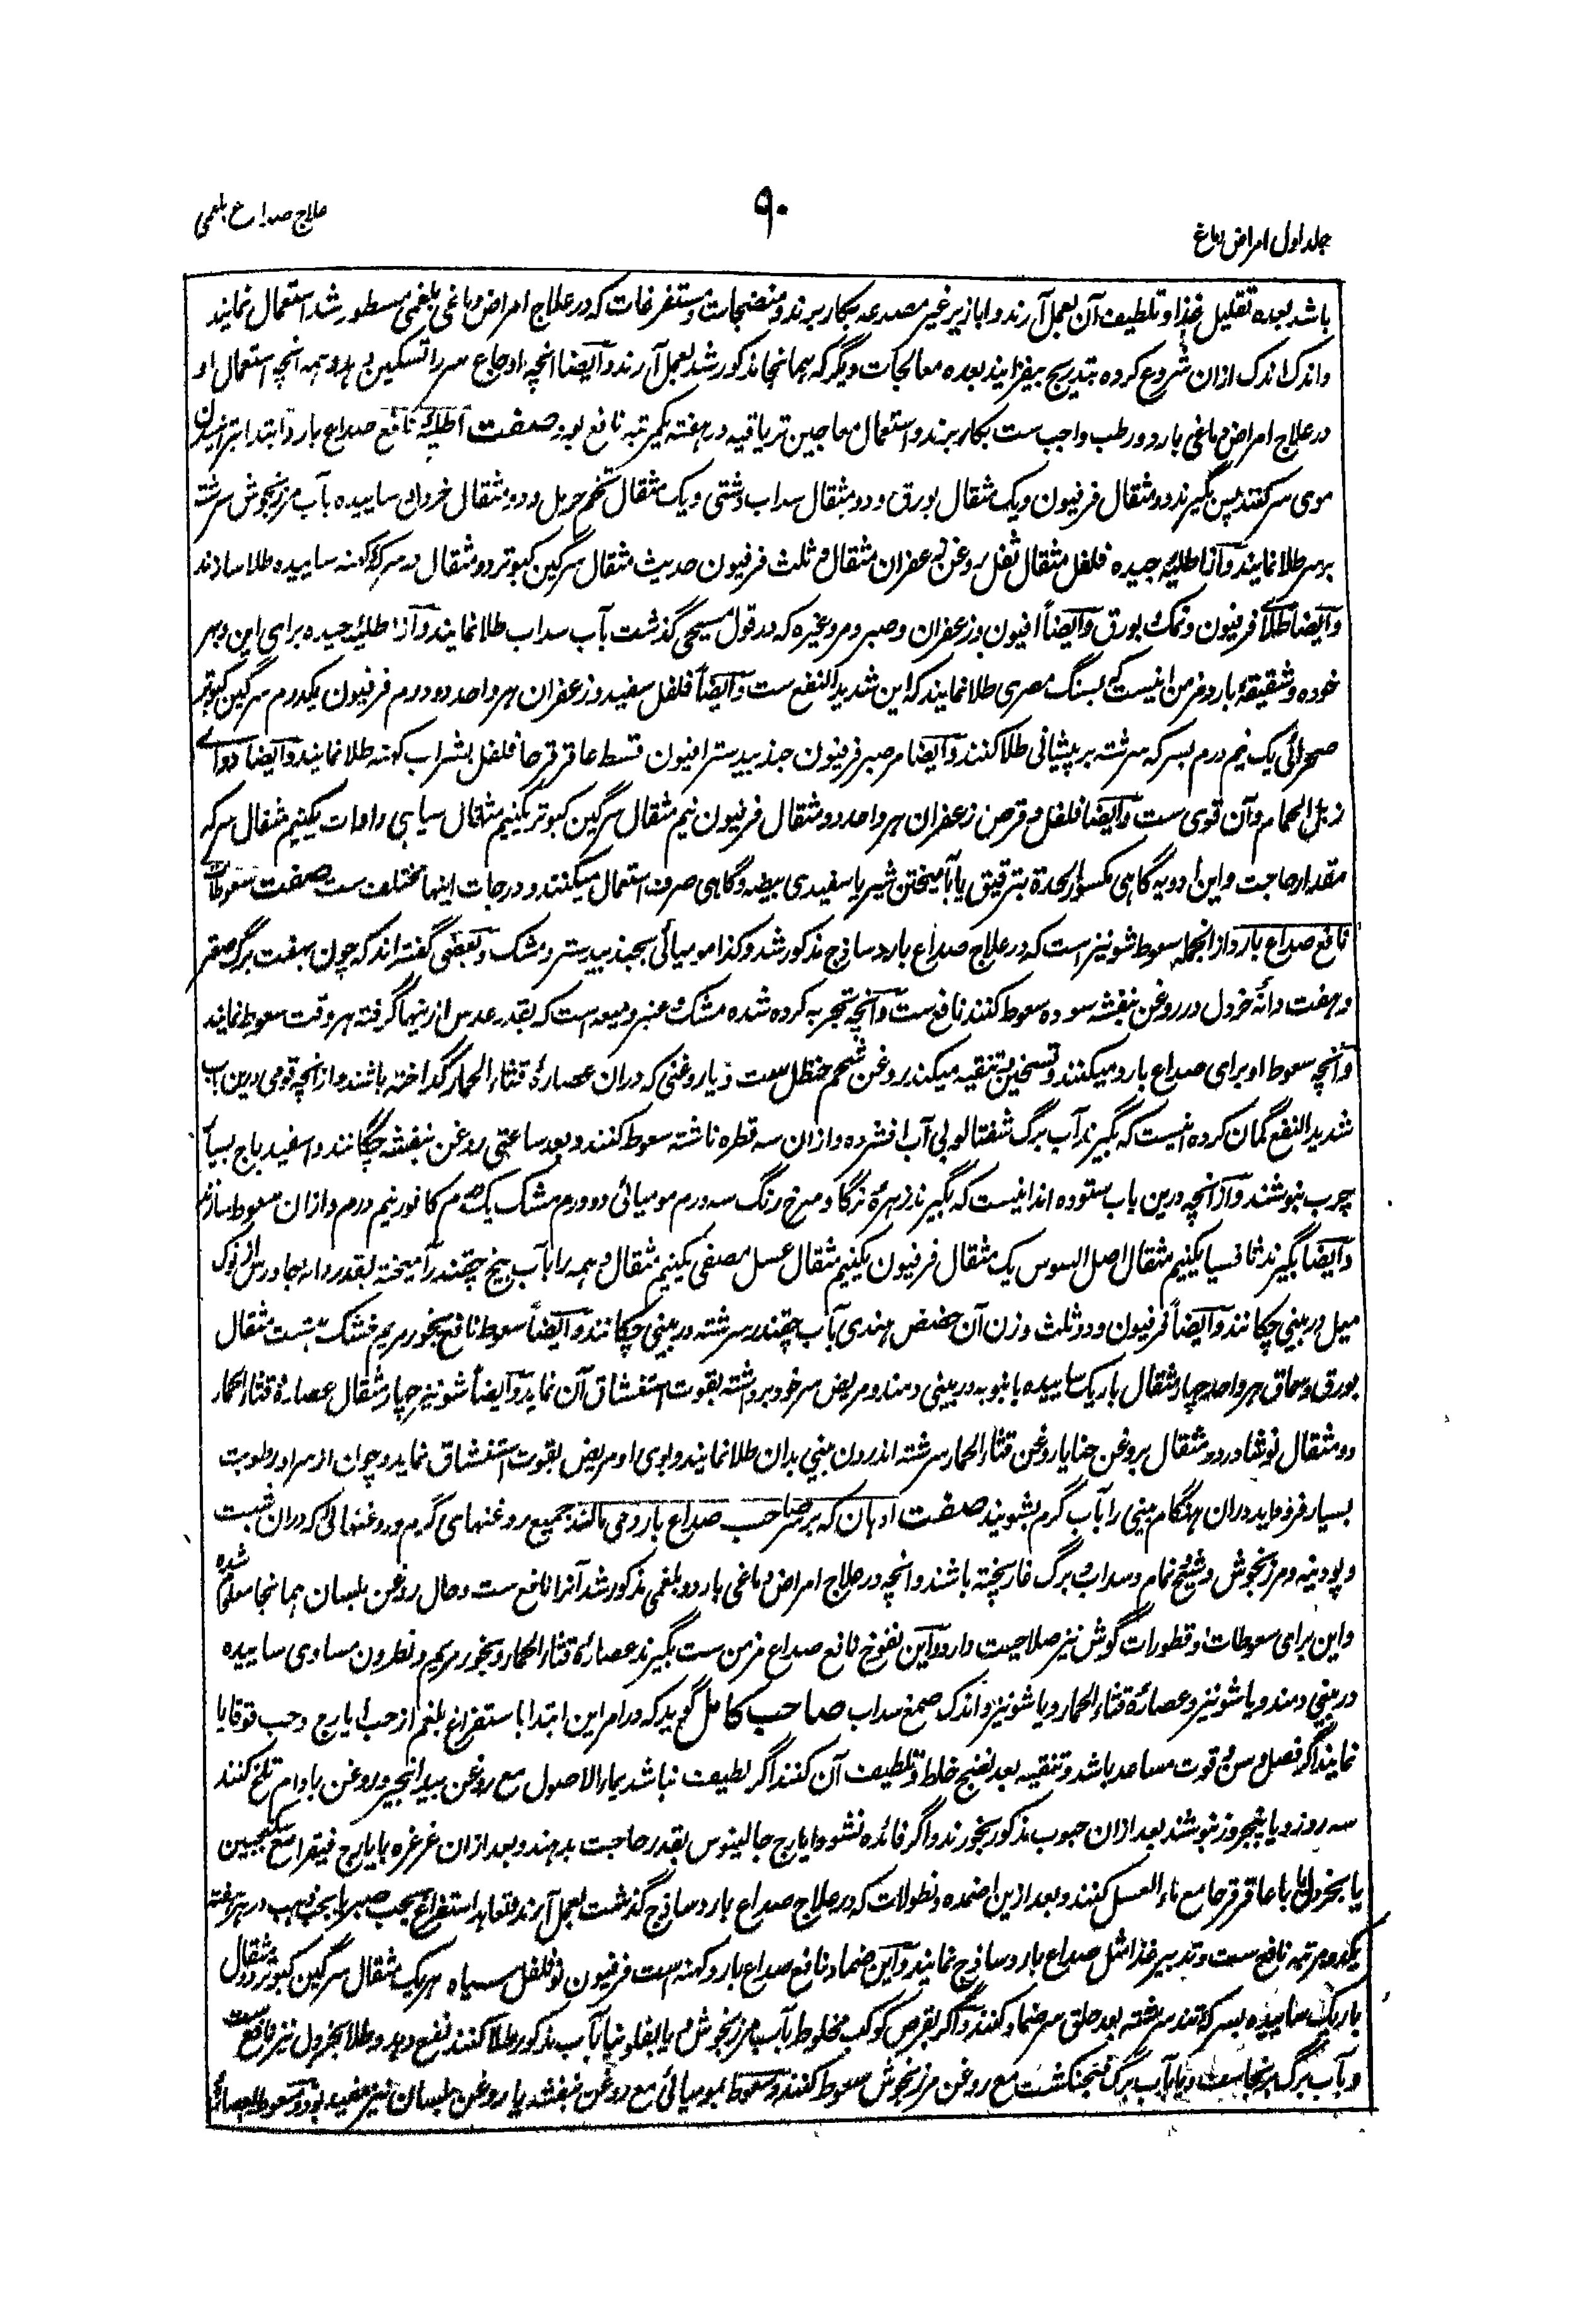 جلد اول امراض دماغ
۹۰
علاج صداع بلغمی
باشد بعده تقلیل غذا و تلطیف آن بعمل آرند و ابازیر غیر مصدعه بکار برند و منضجات و مستفرغات که در علاج امراض دماغی بلغمی مسطور شد استعمال نمایند
و اندک اندک ازان شروع کرده بتدریج بیفزایند بعده معالجات دیگر که همانجا مذکور شد بعمل آرند و ایضا انچه اوجاع سر را تسکین دهد و همه انچه استعمال او
در علاج امراض دماغی بارد و رطب واجب ست بکار برند و استعمال معاجین تریاقیه در هفته یکمرتبه نافع بود صفت اطلیه نافع صداع بارد ابتدا بتراشیدن
موی سر کنند پس بگیرند دو مثقال فرفیون و یک مثقال بورق و دو مثقال سداب دشتی و یک مثقال تخم حرمل و دو مثقال خردل ساییده بآب مرزنجوش سرشته
بر سر طلا نمایند و از اطلیه جیده فلفل مثقال ثفل روغن زعفران مثقال و ثلث فرفیون حدیث مثقال سرگین کبوتر دو مثقال در سرکه کهنه ساییده طلا سازند
و ایضا طلای فرفیون و نمک بورق و ایضاً افیون و زعفران و صبر و مر و غیره که در قول مسیحی گذشت بآب سداب طلا نمایند و از اطلیه جیده برای این و بهر
خوده و شقیقه بارد مزمن اینست که بسنگ مصری طلا نمایند که این شدید النفع ست و ایضاً فلفل سفید و زعفران هر واحد دو درم فرفیون یکدرم سرگین کبوتر
صحرائی یک نیم درم بسرکه سرشته بر پیشانی طلا کنند و ایضا مر صبر فرفیون جندبیدستر افیون قسط عاقرقرحا فلفل بشراب کهنه طلا نمایند و ایضا دوای
زبل الحمام و آن قوی ست و ایضا فلفل و قرص زعفران هر واحد دو مثقال فرفیون نیم مثقال سرگین کبوتر یکنیم مثقال سیاهی دوات یکنیم مثقال سرکه
مقدار حاجت و این ادویه گاهی مکسور الحدة بترقیق یا بآمیختن شیر یا سفیدی بیضه و گاهی صرف استعمال میکنند و درجات اینها مختلف ست صفت سعوطات
نافع صداع بارد ازانجمله سعوط شونیز است که در علاج صداع بارد ساذج مذکور شد و کذا مومیائی بجندبیدستر و مشک و بعضی گفته اند که چون هفت برگ صعتر
و هفت دانه خردل در روغن بنفشه سوده سعوط کنند نافع ست و انچه تجربه کرده شده مشک و عنبر و میعه است که بقدر عدس ازینها گرفته هر وقت سعوط نمایند
و انچه سعوط او برای صداع بارد میکنند و تسخین و تنقیه میکند روغن شحم حنظل ست و یا روغنی که دران عصاره قثاء الحمار گداخته باشند و ازانچه قومی درین باب
شدید النفع گمان کرده اینست که بگیرند آب برگ شفتالو بی آب افشرده و ازان سه قطره ناشته سعوط کنند و بعد ساعتی روغن بنفشه چکانند و اسفیدباج بسیار
چرب بنوشند و ازانچه درین باب ستوده اند اینست که بگیرند زهره نرگاو سرخ رنگ سه درم مومیائی دو درم مشک یک درم کافور نیم درم و ازان سعوط سازند
و ایضاً بگیرند ثافسیا یکنیم مثقال اصل السوس یک مثقال فرفیون یکنیم مثقال عسل مصفی یکنیم مثقال و همه را بآب بیخ چقندر آمیخته بقدر دانه جاورس از نوک
میل در بینی چکانند و ایضاً فرفیون و دو ثلث وزن آن حضض هندی بآب چقندر سرشته در بینی چکانند و ایضاً سعوط نافع بخور مریم خشک هشت مثقال
بورق و سماق هر واحد چهار مثقال باریک ساییده بانبوبه در بینی دمند و مریض سر خود برداشته بقوت استنشاق آن نماید و ایضاً شونیز چهار مثقال عصارۀ قثاء الحمار
دو مثقال نوشادر دو مثقال بروغن حنا یا روغن قثاء الحمار سرشته اندرون بینی بدان طلا نمایند و بوی او مریض بقوت استنشاق نماید و چون از سر او رطوبت
بسیار فرود آید دران هنگام بینی را بآب گرم بشویند صفت ادهان که بر سر صاحب صداع بارد می مالند جمیع روغنهای گرم و روغنهائی که دران شبت
و پودینه و مرزنجوش و شیح و نمام و سداب و برگ غار پخته باشند و انچه در علاج امراض دماغی بارد و بلغمی مذکور شد آنرا نافع ست و حال روغن بلسان همانجا معلوم شده
و این برای سعوطات او قطورات گوش نیز صلاحیت دارد و این نفوخ نافع صداع مزمن ست بگیرند عصاره قثاء الحمار و بخور مریم و نطرون مساوی ساییده
در بینی دمند و یا شونیز و عصارۀ قثاء الحمار و یا شونیز و اندک صمغ سداب صاحب کامل گوید که در امر این ابتدا باستفراغ بلغم از حب ایارج و حب قوقایا
نمایند اگر فصل و سن و قوت مساعد باشد و تنقیه بعد نضج خلط و تلطیف آن کنند اگر لطیف نباشد بماء الاصول مع روغن بیدانجیر و روغن بادام تلخ کنند
سه روز و یا پنجروز بنوشند بعد ازان حبوب مذکور بخورند و اگر فائده نشود ایارج جالینوس بقدر حاجت بدهند و بعد ازان غرغره بایارج فیقرا مع سکنجبین
یا بخردل یا با عاقرقرحا مع ماء العسل کنند و بعد ازین اضمده و نطولات که در علاج صداع بارد ساذج گذشت بعمل آرند و تعاهد استفراغ بحب صبر یا بحب ذهب در هر هفته
یکدو مرتبه نافع ست و تدبیر غذا مثل صداع بارد ساذج نمایند و این ضماد نافع صداع بارد کهنه است فرفیون و فلفل سیاه هر یک مثقال سرگین کبوتر دو مثقال
باریک ساییده بسرکه تند سرشته بعد حلق سر ضماد کنند و اگر بقرص کوکب مخلوط بآب مرزنجوش و یا بفلونیا بآب مذکور طلا کنند نفع دهد و طلا بخردل نیز نافع ست
و بآب برگ برنجاسف و یا بآب برگ فنجنکشت مع روغن مرزنجوش سعوط کنند و سعوط بمومیائی مع روغن بنفشه یا روغن بلسان نیز مفید بود و سعوط بعصاره